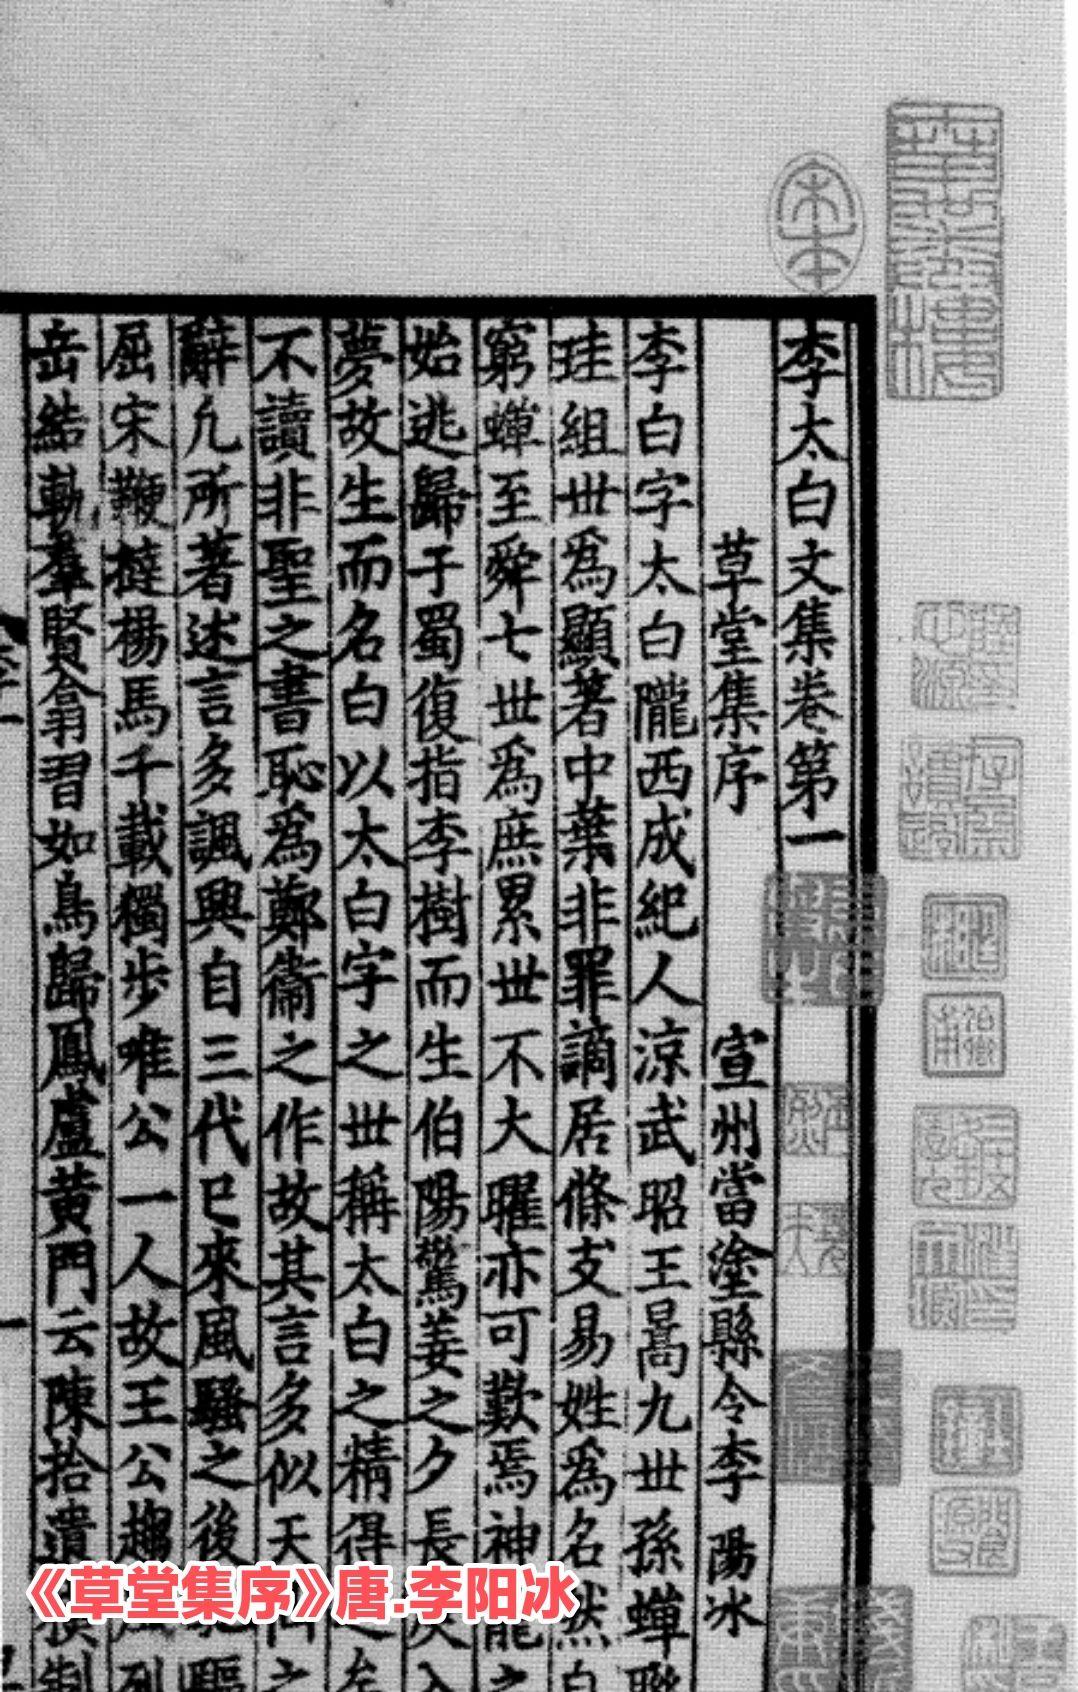 宋本
李太白文集卷第一
草堂集序　宣州當塗縣令李陽冰
李白字太白隴西成紀人涼武昭王暠九丗孫蟬聯
珪組丗爲顯著中葉非罪謫居條支易姓爲名然自
窮蟬至舜七丗爲庶累丗不大曜亦可歎焉神龍之
始逃歸于蜀復指李樹而生伯陽驚姜之夕長庚入
夢故生而名白以太白字之丗稱太白之精得之矣
不讀非聖之書恥爲鄭衞之作故其言多似天仙之
辭凢所著述言多諷興自三代已來風騷之後馳驅
屈宋鞭撻楊馬千載獨步唯公一人故王公趨風列
岳結軌羣賢翕習如鳥歸鳳盧黃門云陳拾遺橫制
《草堂集序》唐.李阳冰